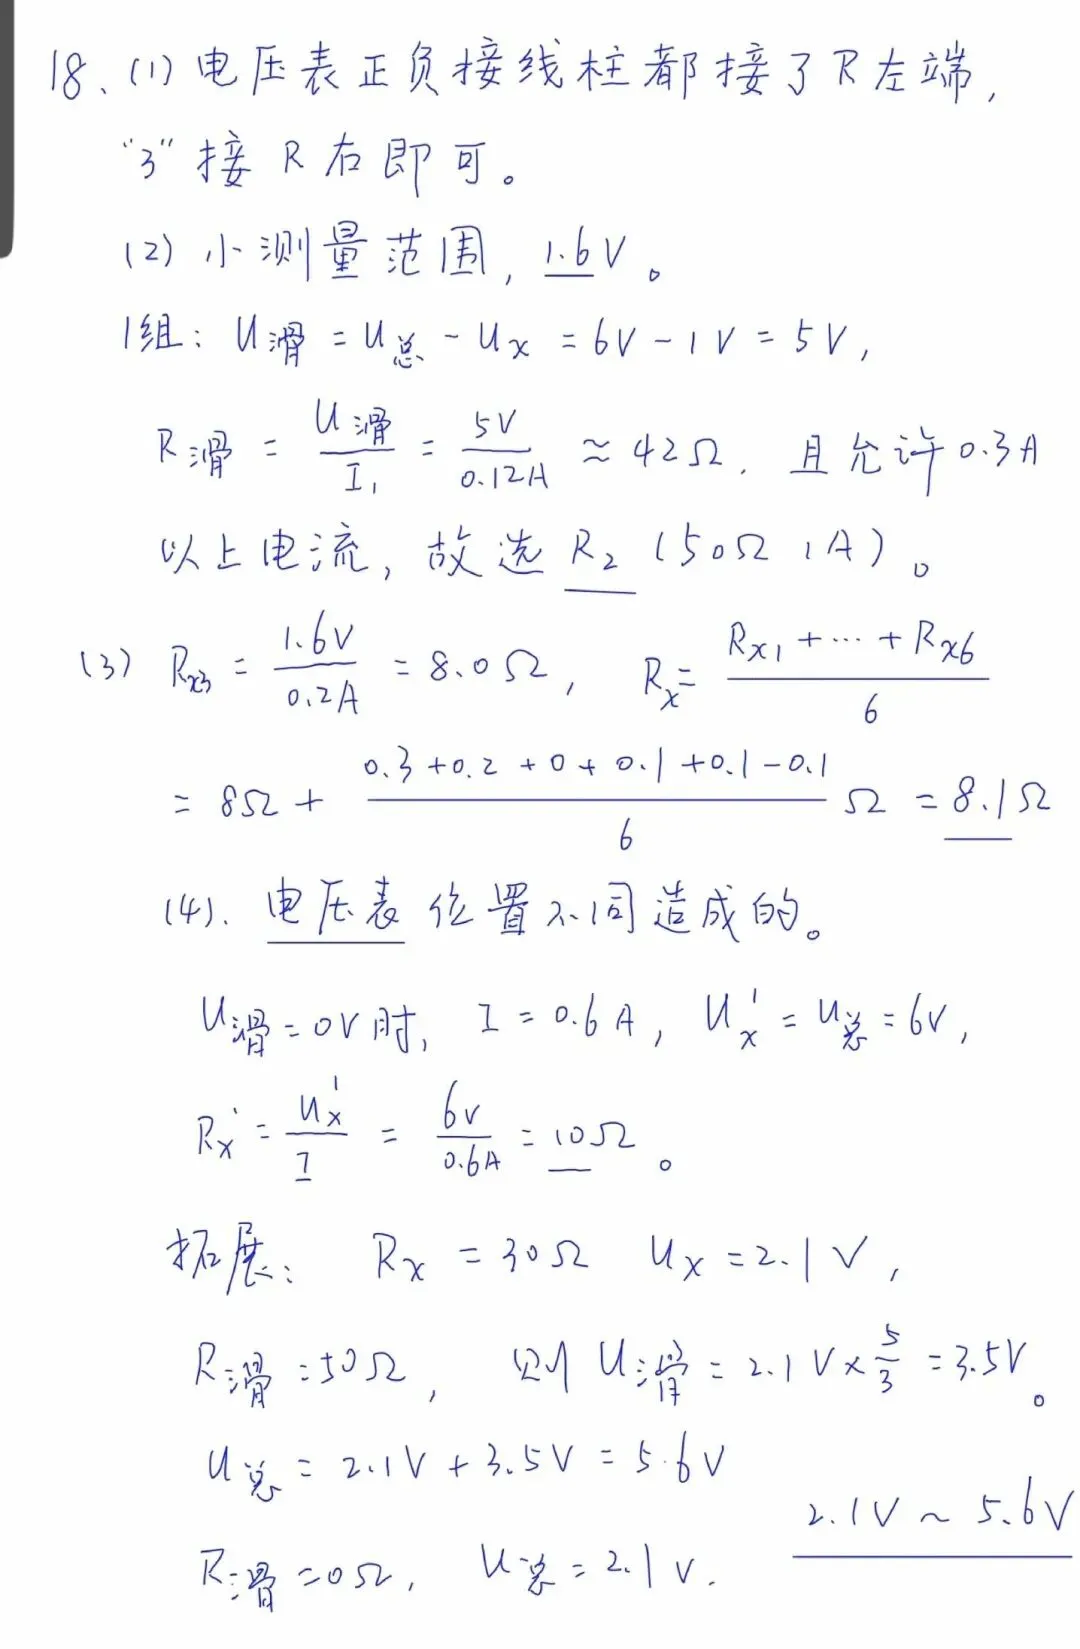 18、(1) 电压表正负接线柱都接了R左端,
"3"接R右即可。
(2) 小测量范围, 1.6V。
1组: U滑 = U总 - Ux = 6V - 1V = 5V,
R滑 = U滑/I₁ = 5V/0.12A ≈ 42Ω. 且允许0.3A
以上电流, 故选 R₂ (50Ω 1A)。
(3) Rx3 = 1.6V/0.2A = 8.0Ω, Rx = (Rx1 + ··· + Rx6)/6
= 8Ω + (0.3+0.2+0+0.1+0.1-0.1)/6 Ω = 8.1Ω
(4). 电压表位置不同造成的。
U滑=0V时, I = 0.6A, Ux' = U总 = 6V,
Rx' = Ux'/I = 6V/0.6A = 10Ω。
拓展: Rx = 30Ω Ux = 2.1V,
R滑 = 50Ω, 则 U滑 = 2.1V × 5/3 = 3.5V。
U总 = 2.1V + 3.5V = 5.6V
2.1V ~ 5.6V
R滑 = 0Ω, U总 = 2.1V.